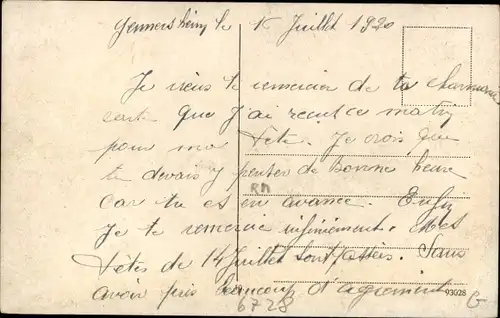 Germersheim le 16 Juillet 1920
Je viens te remercier de ta charmante
carte que j'ai reçut ce matin
pour ma fête. Je crois que
tu devais y penser de bonne heure
car tu es en avance. Enfin
Je te remercie infiniment. Mes
fêtes de 14 Juillet sont passées. Sans
avoir pris beaucoup d'agrement
RM
93028
6728
G